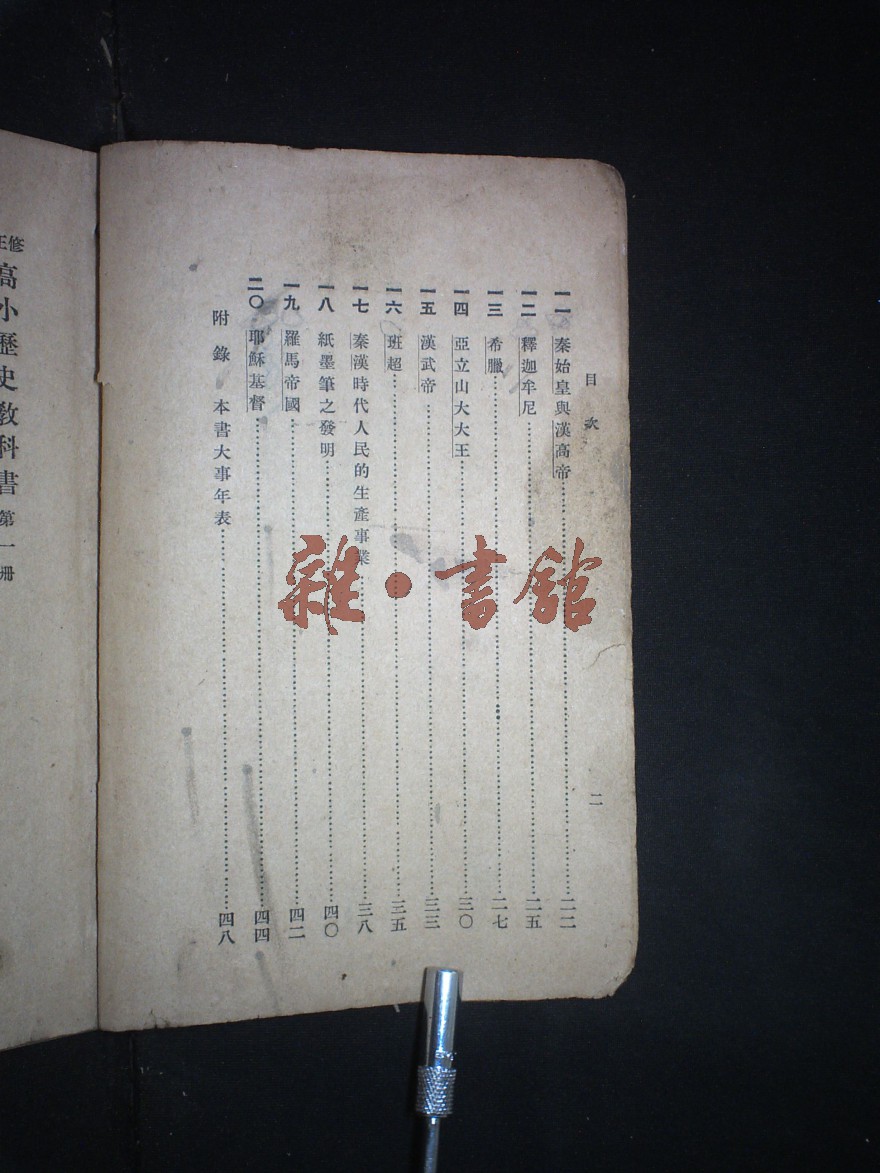 目次
一一 秦始皇與漢高帝……二二
一二 釋迦牟尼……二五
一三 希臘……二七
一四 亞立山大大王……三〇
一五 漢武帝……三三
一六 班超……三五
一七 秦漢時代人民的生產事業……三八
一八 紙墨筆之發明……四〇
一九 羅馬帝國……四二
二〇 耶穌基督……四四
附錄 本書大事年表……四八
二
修正
高小歷史教科書 第一冊
雜·書館